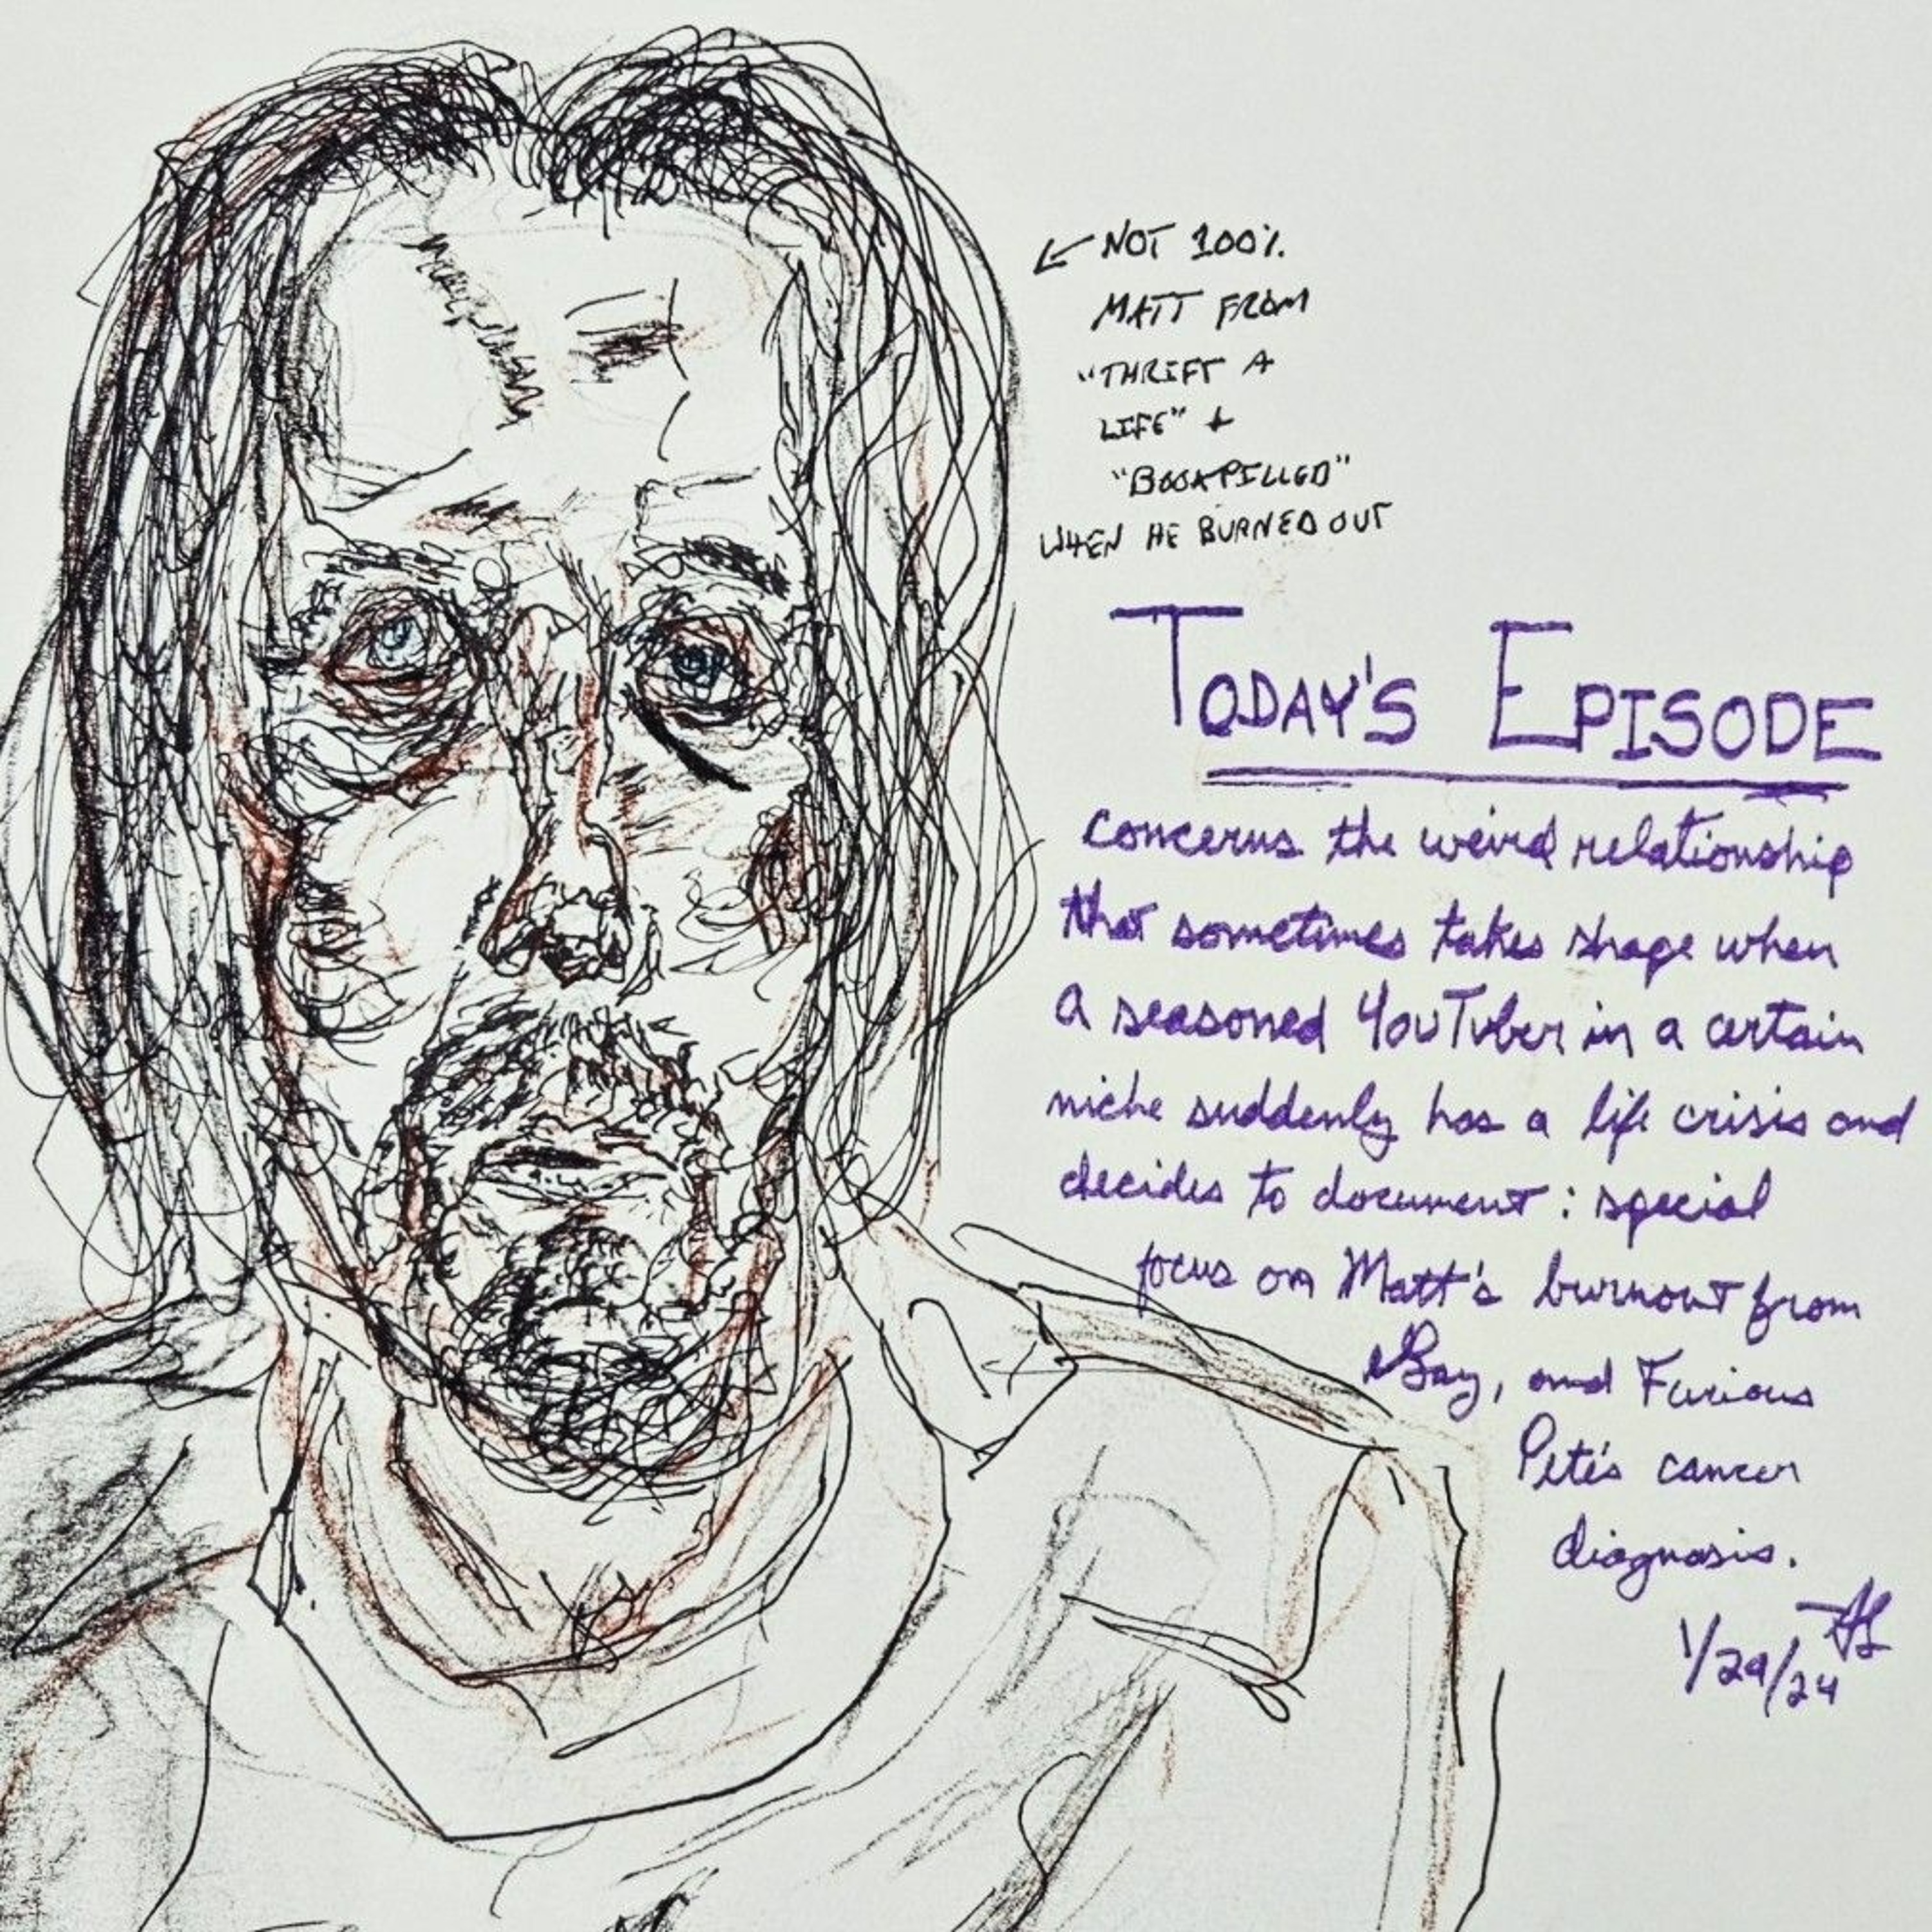 ← NOT 100%
MATT FROM
"THRIFT A
LIFE" +
"BOOKPILLED"
WHEN HE BURNED OUT
TODAY'S EPISODE
concerns the weird relationship
that sometimes takes shape when
a seasoned YouTuber in a certain
niche suddenly has a life crisis and
decides to document: special
focus on Matt's burnout from
eBay, and Furious
Pete's cancer
diagnosis.
1/29/24